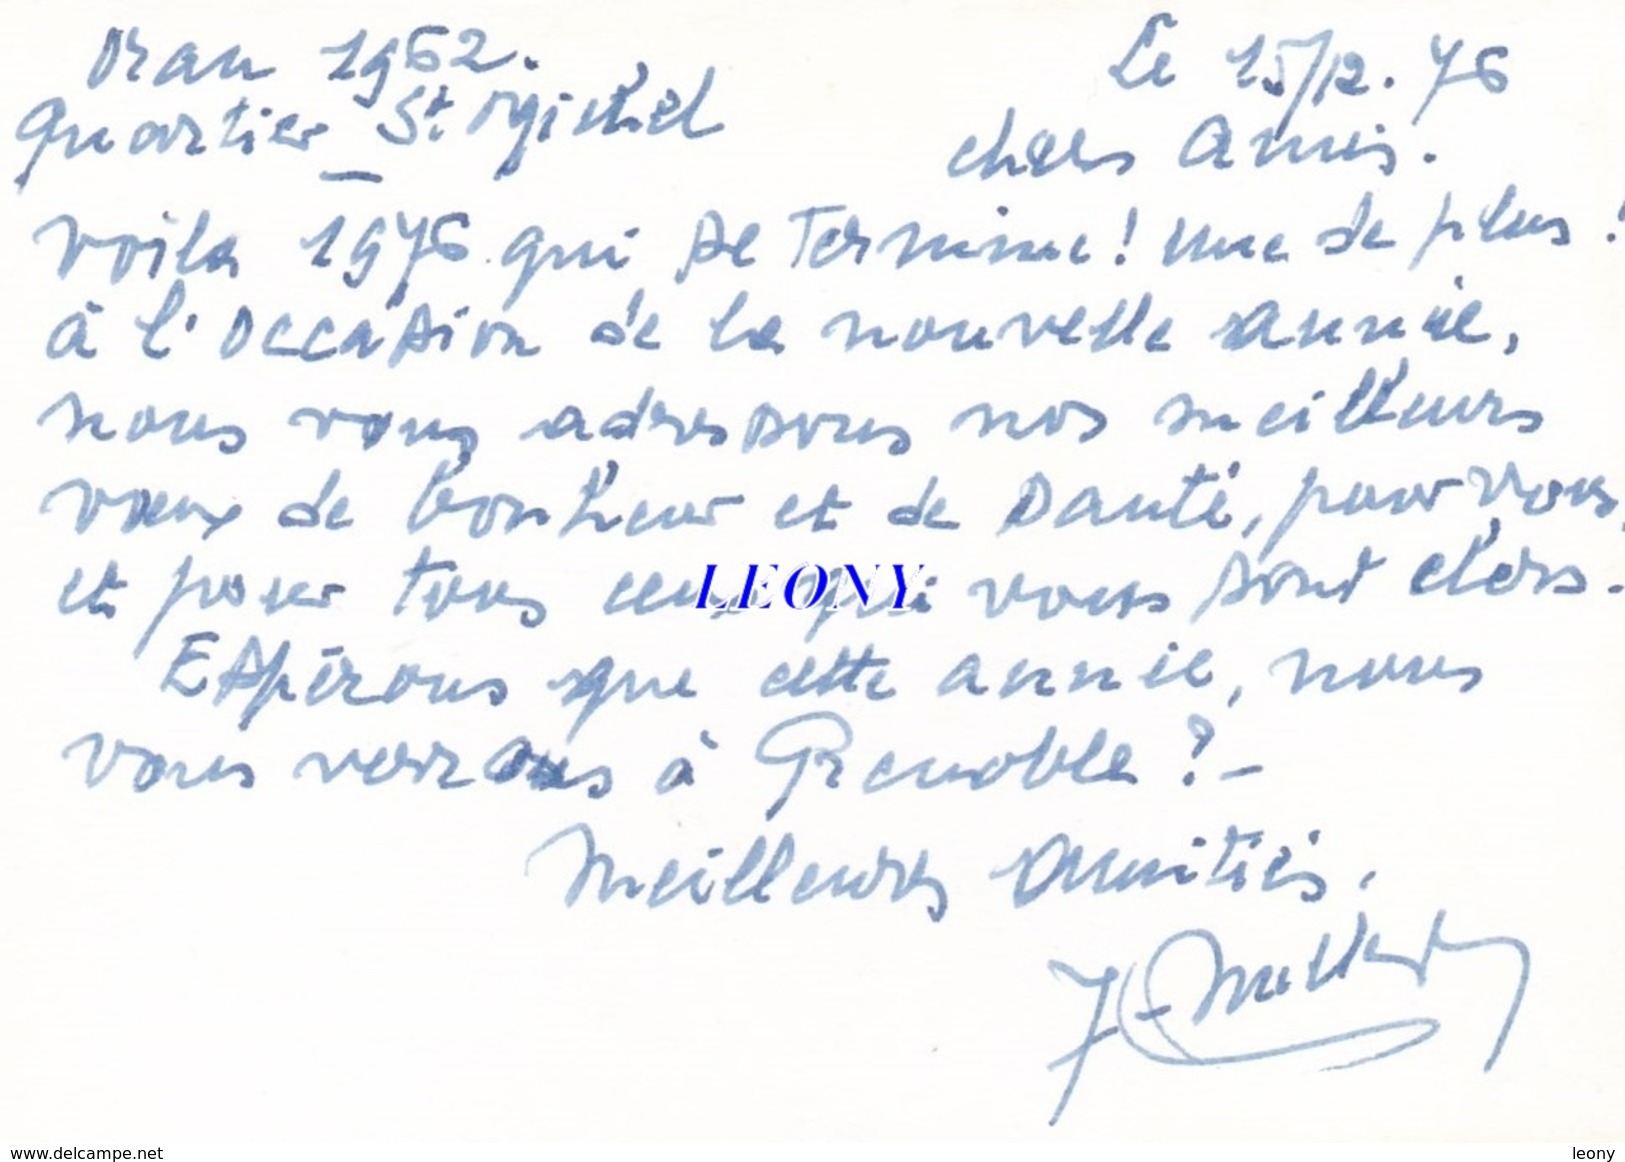 Oran 1962.
Quartier St Michel
Le 15/12.76
chers Amis.
Voila 1976 qui se Termine! une de plus!
à l'occasion de la nouvelle année,
nous vous adressons nos meilleurs
vœux de bonheur et de santé, pour vous,
et pour tous ceux qui vous sont chers.
LEONY
Espérons que cette année, nous
vous verrons à Grenoble?-
Meilleures amitiés.
www.delcampe.net
leony